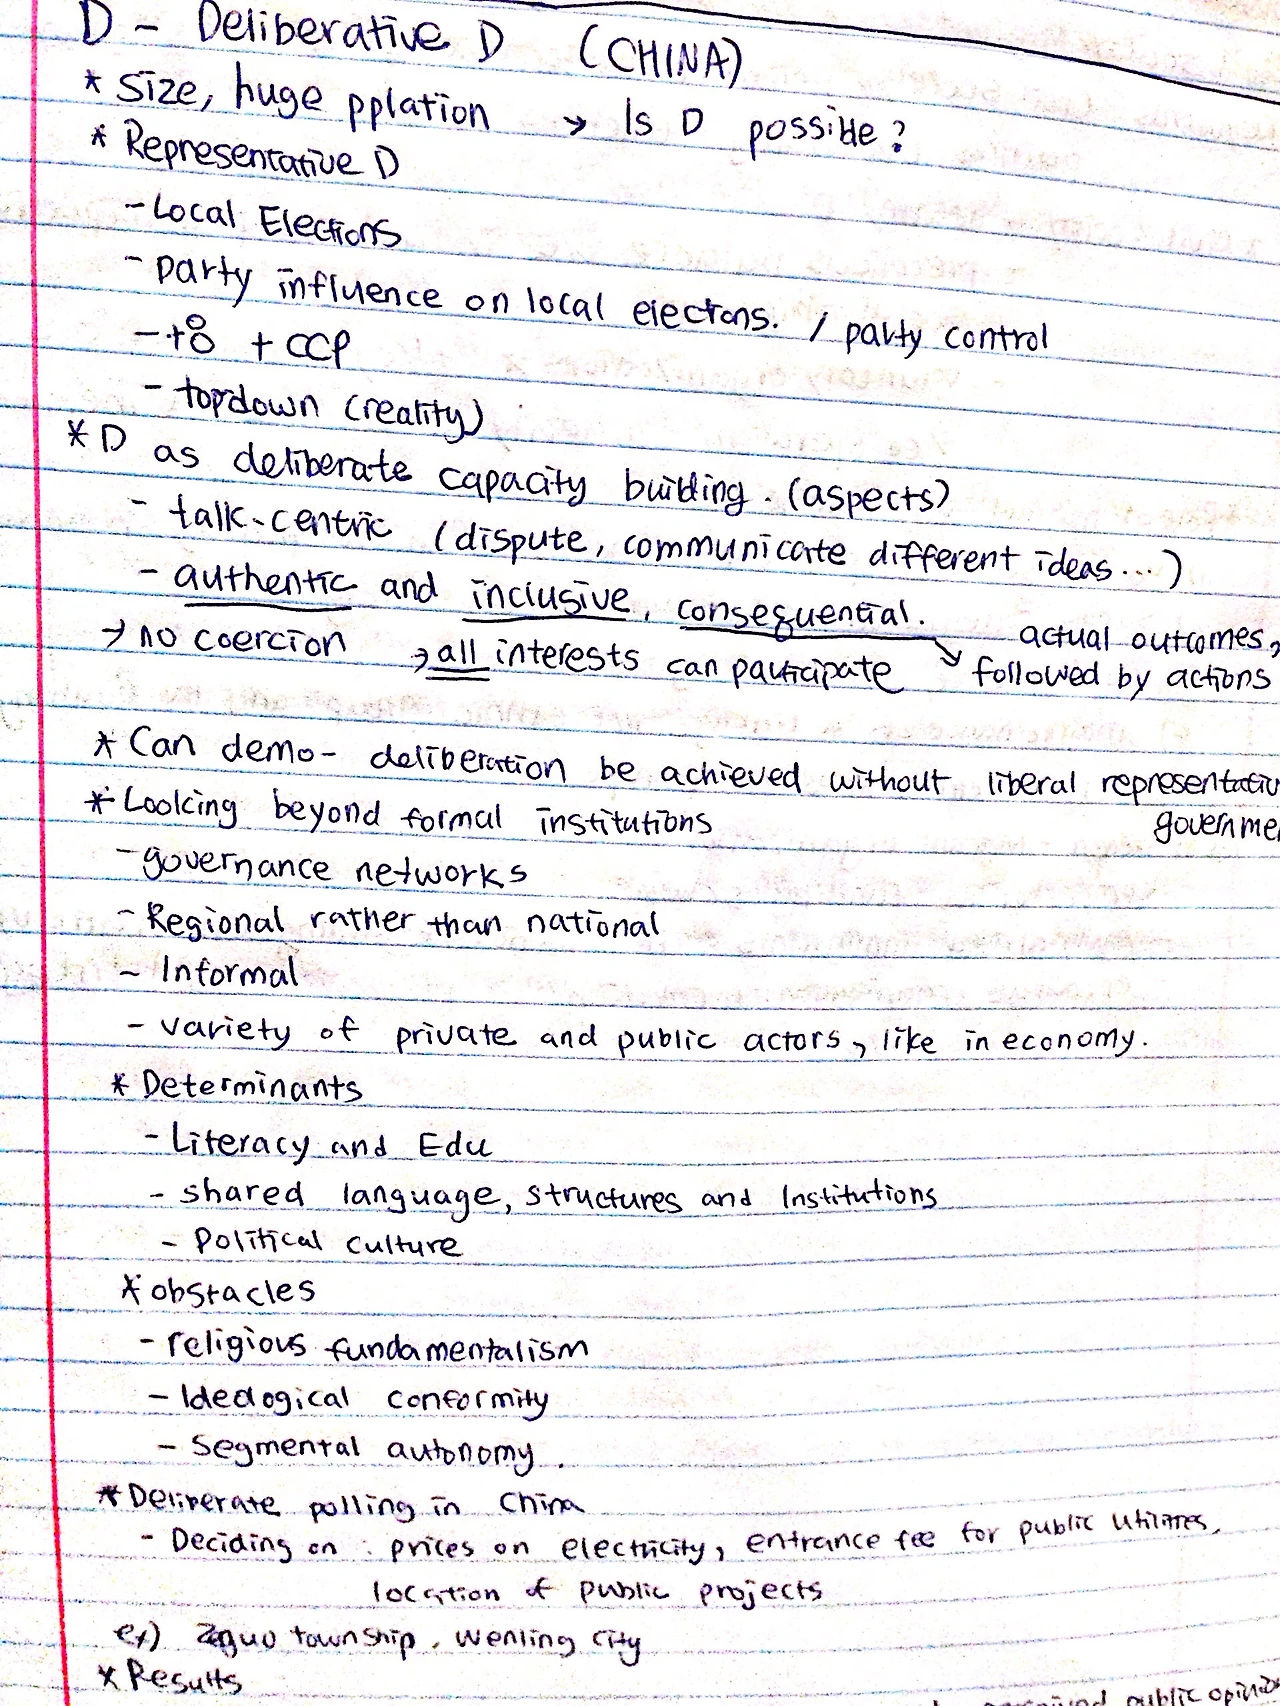 D - Deliberative D (CHINA)
* Size, huge pplation → Is D possible?
* Representative D
- Local Elections
- party influence on local electons. / party control
- + CCP
- topdown (reality)
* D as deliberate capacity building. (aspects)
- talk-centric (dispute, communicate different ideas...)
- authentic and inclusive, consequential.
→ no coercion → all interests can participate ↘ actual outcomes,
followed by actions
* Can demo- deliberation be achieved without liberal representativ
governme
* Looking beyond formal institutions
- governance networks
- Regional rather than national
- Informal
- variety of private and public actors, like in economy.
* Determinants
- Literacy and Edu
- shared language, structures and Institutions
- Political culture
* obstacles
- religious fundamentalism
- Ideological conformity
- Segmental autonomy.
* Deliberate polling in China
- Deciding on : prices on electricity, entrance fee for public utilities,
location of public projects
ex) Zeguo township, Wenling City
* Results
public opinio